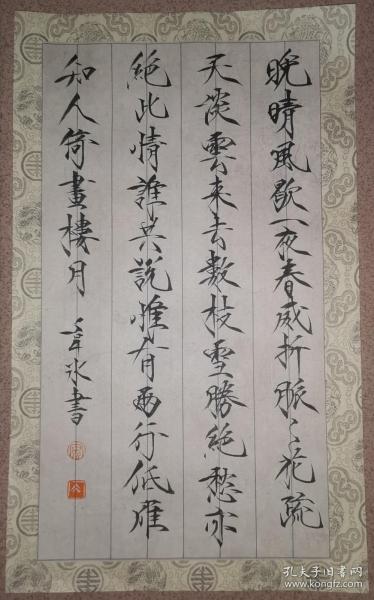 晚晴風歇一夜春威折脈々花疏
天淡雲來去數枝雪勝絕愁亦
絕此情誰共說惟有兩行低雁
知人倚畫樓月 韋冰書
孔夫子旧书网